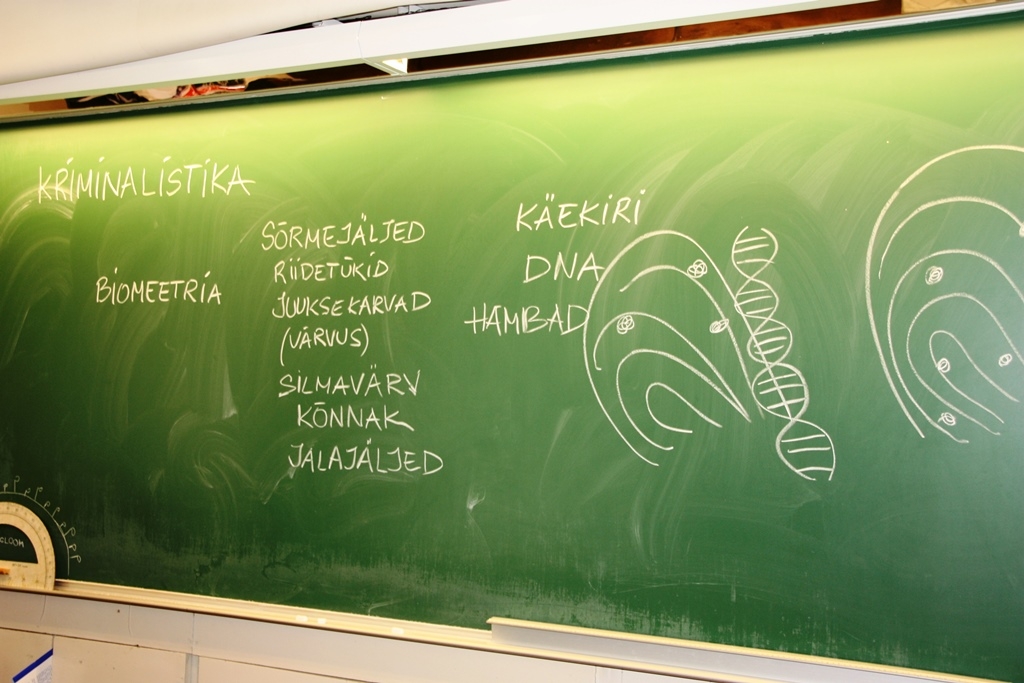 KRIMINALISTIKA
BIOMEETRIA
SÕRMEJÄLJED
RIIDETÜKID
JUUKSEKARVAD
(VÄRVUS)
SILMAVÄRV
KÕNNAK
JALAJÄLJED
KÄEKIRI
DNA
HAMBAD